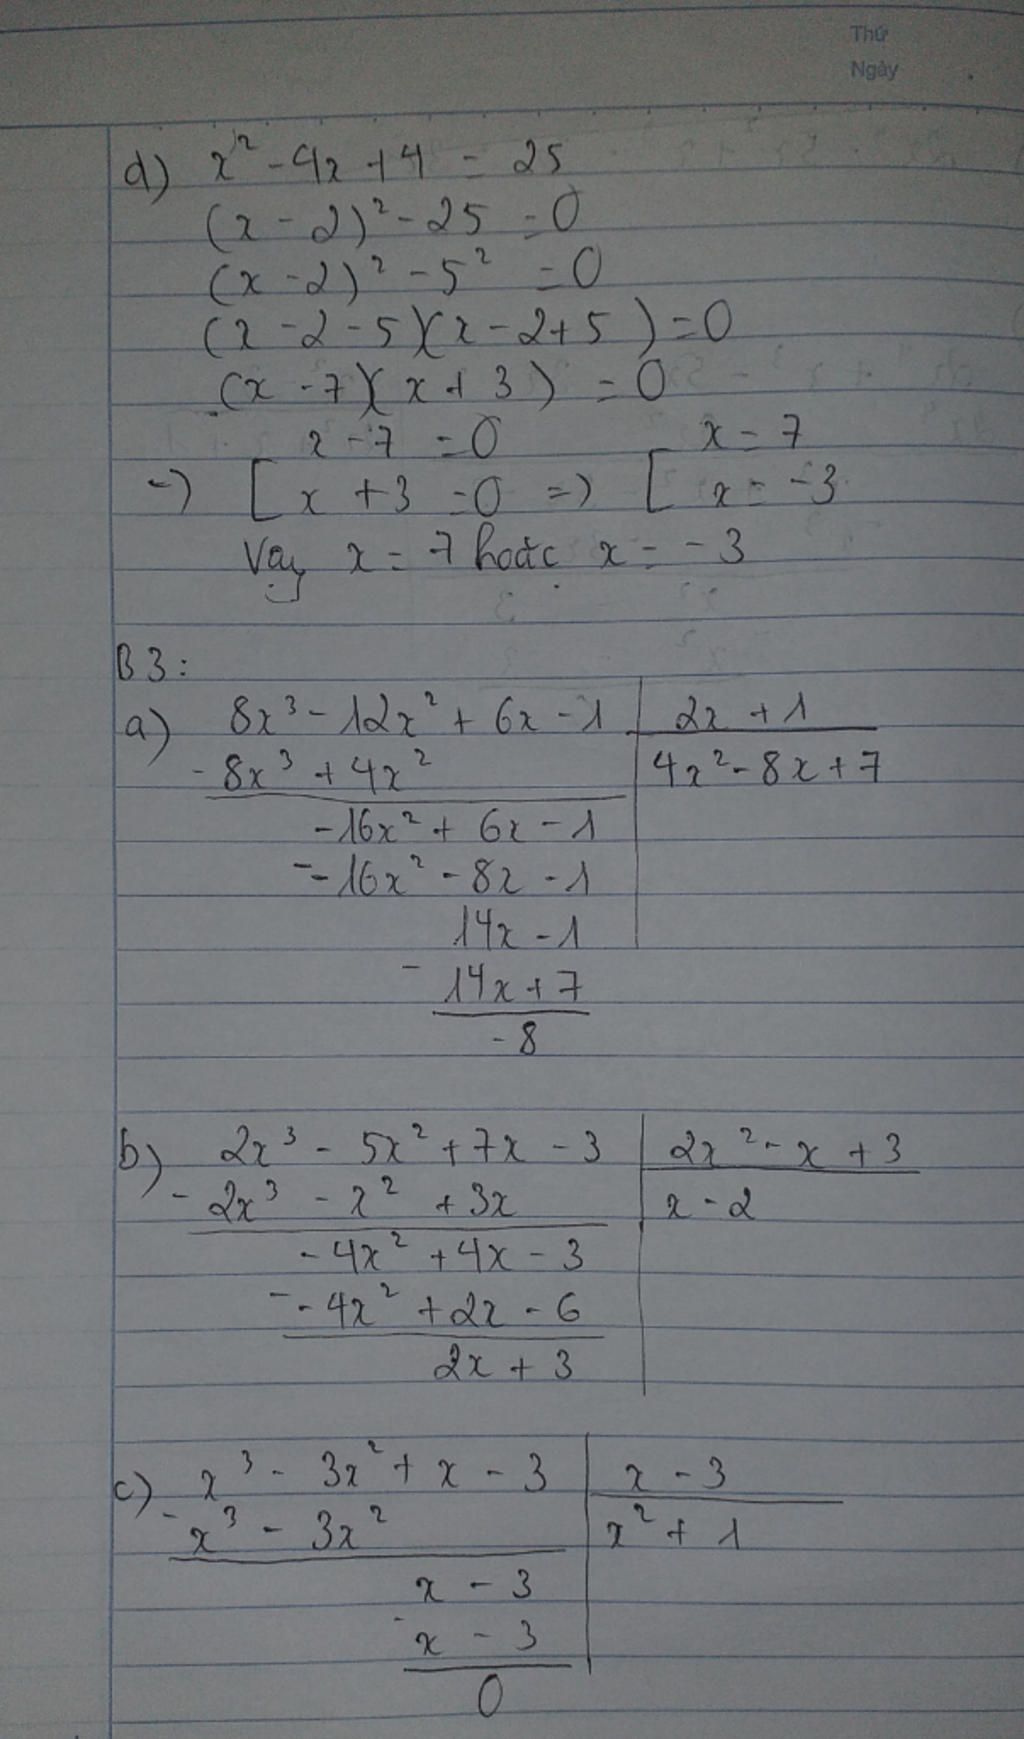 Thứ
Ngày
d) x² - 4x + 4 = 25
(x - 2)² - 25 = 0
(x - 2)² - 5² = 0
(x - 2 - 5)(x - 2 + 5) = 0
(x - 7)(x + 3) = 0
x - 7 = 0 x = 7
=> [ x + 3 = 0 => [ x = -3
Vậy x = 7 hoặc x = -3
B3:
a) 8x³ - 12x² + 6x - 1 | 2x + 1
- 8x³ + 4x² | 4x² - 8x + 7
-16x² + 6x - 1
- -16x² - 8x - 1
14x - 1
- 14x + 7
-8
b) 2x³ - 5x² + 7x - 3 | 2x² - x + 3
- 2x³ - x² + 3x | x - 2
-4x² + 4x - 3
- -4x² + 2x - 6
2x + 3
c) x³ - 3x² + x - 3 | x - 3
- x³ - 3x² | x² + 1
x - 3
- x - 3
0